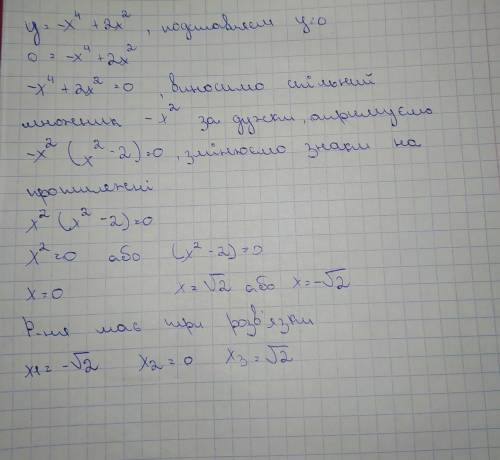 y = -x⁴ + 2x², підставляєм y=0
0 = -x⁴ + 2x²
-x⁴ + 2x² = 0, виносимо спільний
множник -x² за дужки, отримуємо
-x² (x² - 2) = 0, змінюємо знаки на
протилежні
x² (x² - 2) = 0
x² = 0 або (x² - 2) = 0
x = 0 x = √2 або x = -√2
Р-ня має три розв'язки
x1 = -√2 x2 = 0 x3 = √2